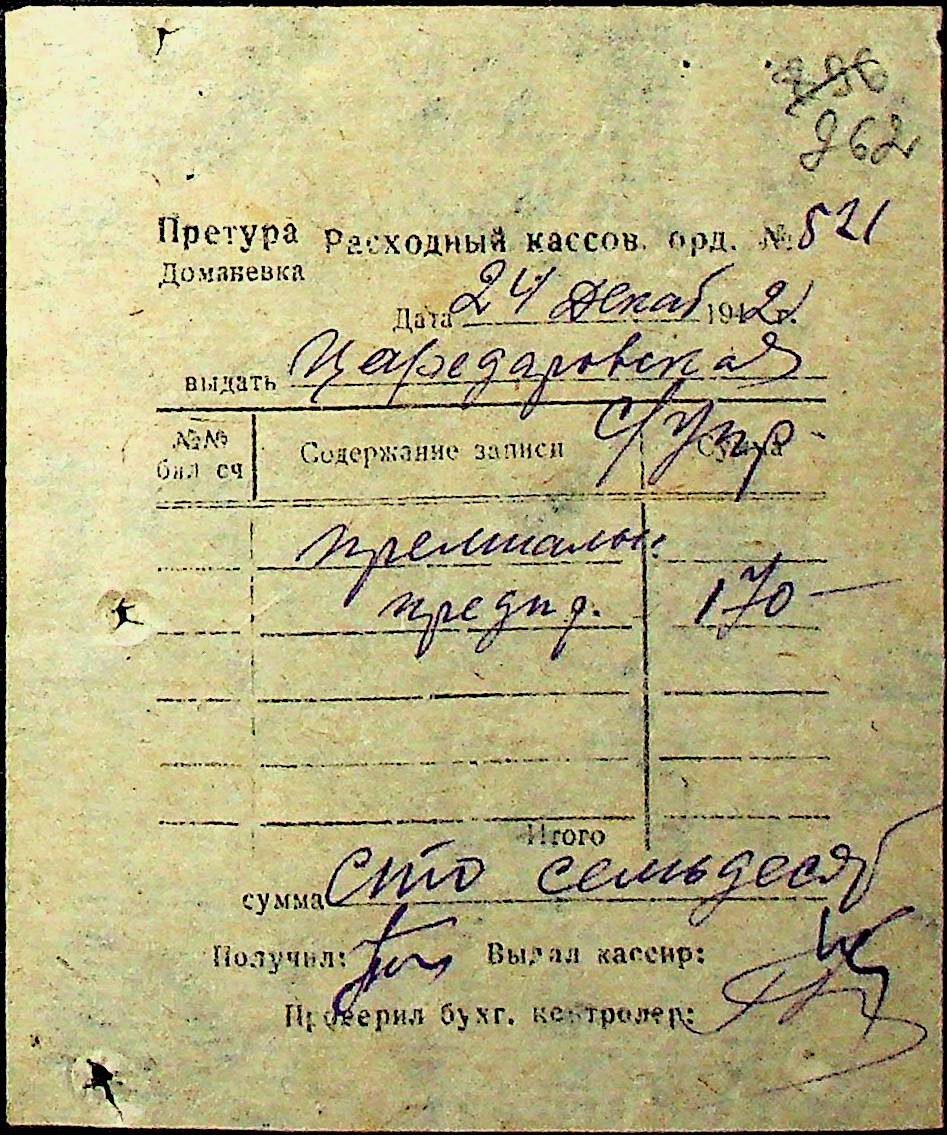 296
262
Претура Расходный кассов. орд. № 521
Доманевка
Дата 24 Декаб 1942 г.
выдать Цередаровская
с/упр.
№№ Содержание записи Сумма
бил сч
премиальн.
170 —
Итого
сумма Сто семьдесят
Получил: Выдал кассир:
Проверил бухг. контролер: